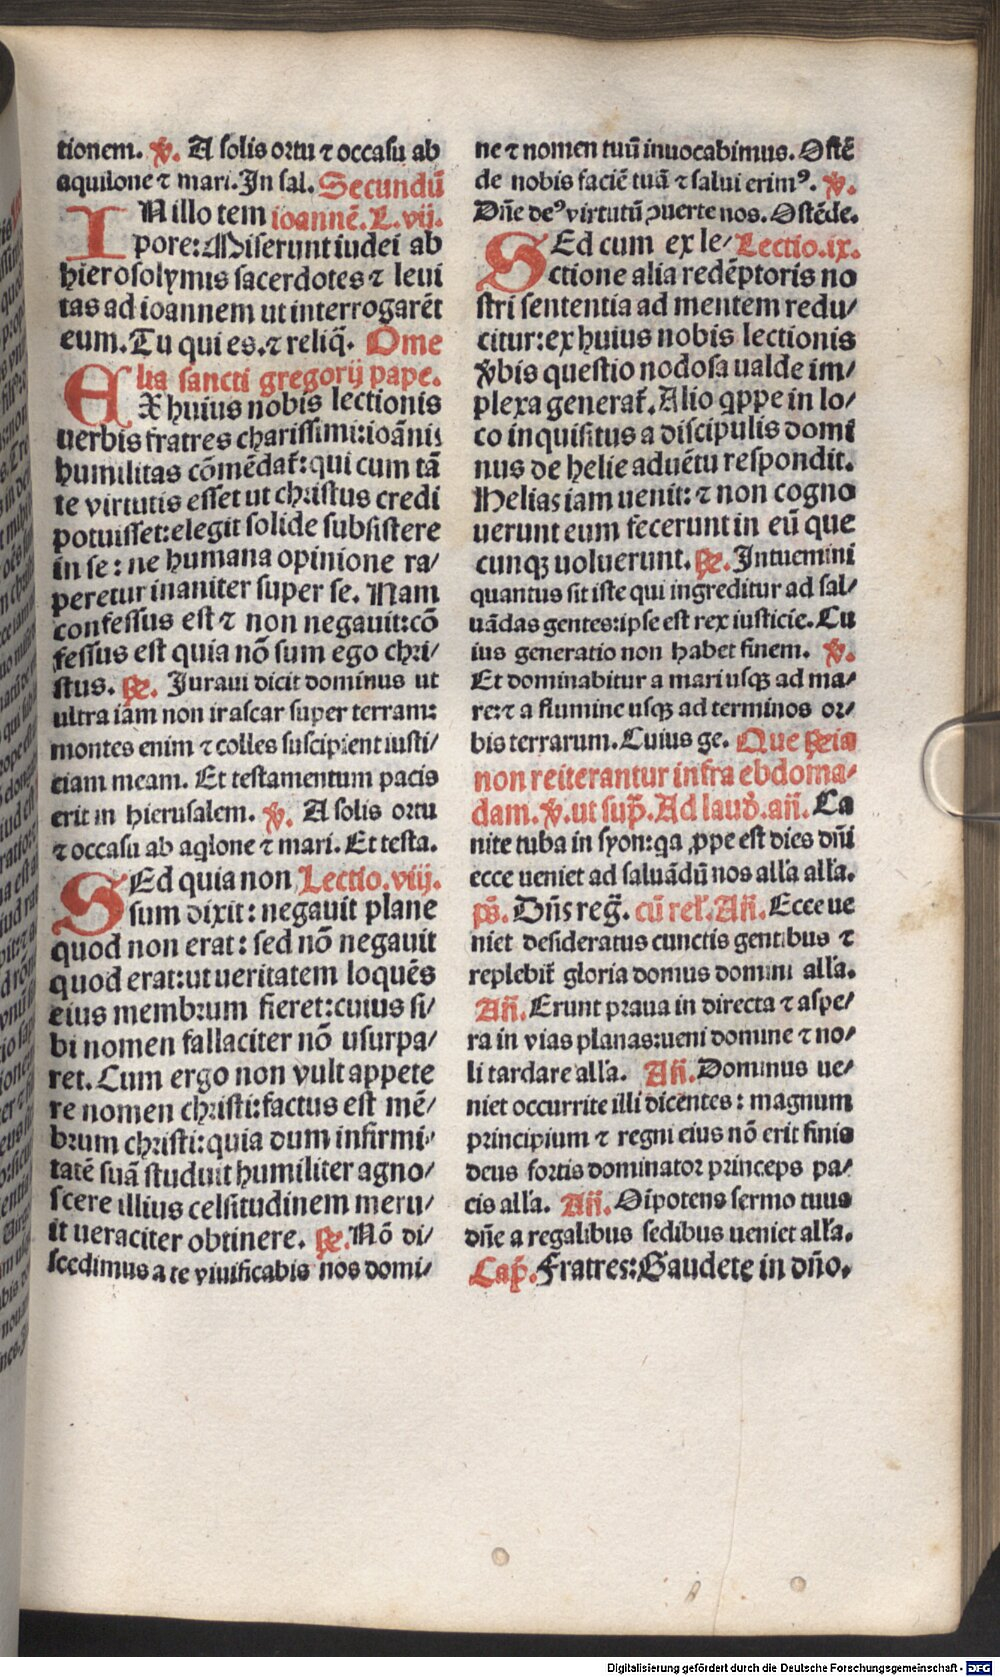 tionem. ℣. A solis ortu ⁊ occasu ab
aquilone ⁊ mari. In sal. Secundū
IN illo tem ioannē. L. vij.
pore: Miserunt iudei ab
hierosolymis sacerdotes ⁊ leui
tas ad ioannem ut interrogarēt
eum. Tu qui es. ⁊ reliq̄. Ome
lia sancti gregorij pape.
EX huius nobis lectionis
uerbis fratres charissimi: ioānis
humilitas cōmēdat̄: qui cum tā
te virtutis esset ut christus credi
potuisset: elegit solide subsistere
in se: ne humana opinione ra/
peretur inaniter super se. Nam
confessus est ⁊ non negauit: cō
fessus est quia nō sum ego chri/
stus. ℟. Juraui dicit dominus ut
ultra iam non irascar super terram:
montes enim ⁊ colles suscipient iusti/
ciam meam. Et testamentum pacis
erit in hierusalem. ℣. A solis ortu
⁊ occasu ab aqlone ⁊ mari. Et testa.
SEd quia non Lectio. viij.
sum dixit: negauit plane
quod non erat: sed nō negauit
quod erat: ut ueritatem loquēs
eius membrum fieret: cuius si/
bi nomen fallaciter nō usurpa/
ret. Cum ergo non vult appete
re nomen christi: factus est mē/
brum christi: quia dum infirmi/
tatē suā studuit humiliter agno/
scere illius celsitudinem meru/
it ueraciter obtinere. ℟. Nō di/
scedimus a te viuificabis nos domi/
ne ⁊ nomen tuū inuocabimus. Ostē
de nobis faciē tuā ⁊ salui erimꝰ. ℣.
Dn̄e deꝰ virtutū ꝯuerte nos. Ostēde.
SEd cum ex le/ Lectio. ix.
ctione alia redēptoris no
stri sententia ad mentem redu/
citur: ex huius nobis lectionis
v̄bis questio nodosa ualde im/
plexa generat̄. Alio qppe in lo/
co inquisitus a discipulis domi
nus de helie aduētu respondit.
Helias iam uenit: ⁊ non cogno
uerunt eum fecerunt in eū que
cunqꝫ uoluerunt. ℟. Intuemini
quantus sit iste qui ingreditur ad sal/
uādas gentes: ipse est rex iusticie. Cu
ius generatio non habet finem. ℣.
Et dominabitur a mari usqꝫ ad ma/
re: ⁊ a flumine usqꝫ ad terminos or/
bis terrarum. Cuius ge. Que ℟ria
non reiterantur infra ebdoma/
dam. ℣. ut sup̄. Ad laud̄. an̄. Ca
nite tuba in syon: qa ꝓpe est dies dn̄i
ecce ueniet ad saluādū nos alľa alľa.
ps̄. Dn̄s reḡ. cū rel̄. An̄. Ecce ue
niet desideratus cunctis gentibus ⁊
replebit̄ gloria domus domini alľa.
An̄. Erunt praua in directa ⁊ aspe/
ra in vias planas: ueni domine ⁊ no/
li tardare alľa. An̄. Dominus ue/
niet occurrite illi dicentes: magnum
principium ⁊ regni eius nō erit finis
deus fortis dominator princeps pa/
cis alľa. An̄. Oīpotens sermo tuus
dn̄e a regalibus sedibus ueniet alľa.
Cap̄. Fratres: Gaudete in dn̄o.
Digitalisierung gefördert durch die Deutsche Forschungsgemeinschaft - DFG